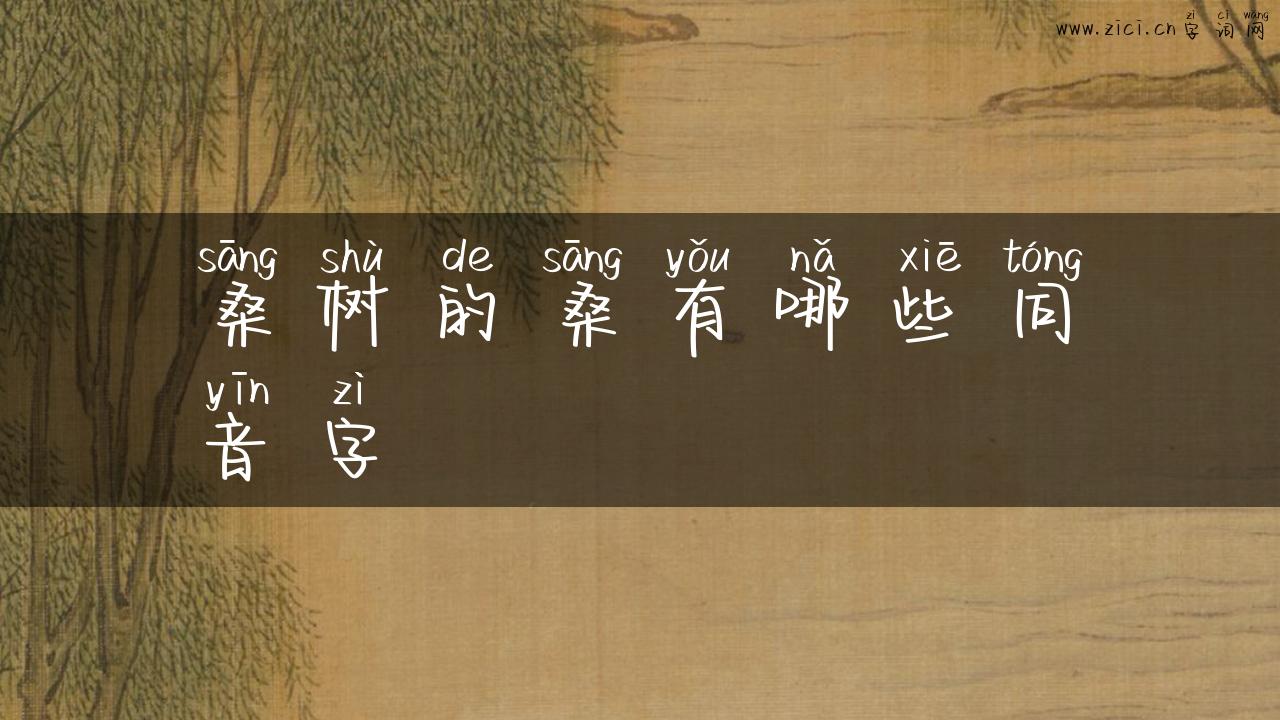 zì cí wǎng
www.zici.cn字词网
sāng shù de sāng yǒu nǎ xiē tóng
桑树的桑有哪些同
yīn zì
音字